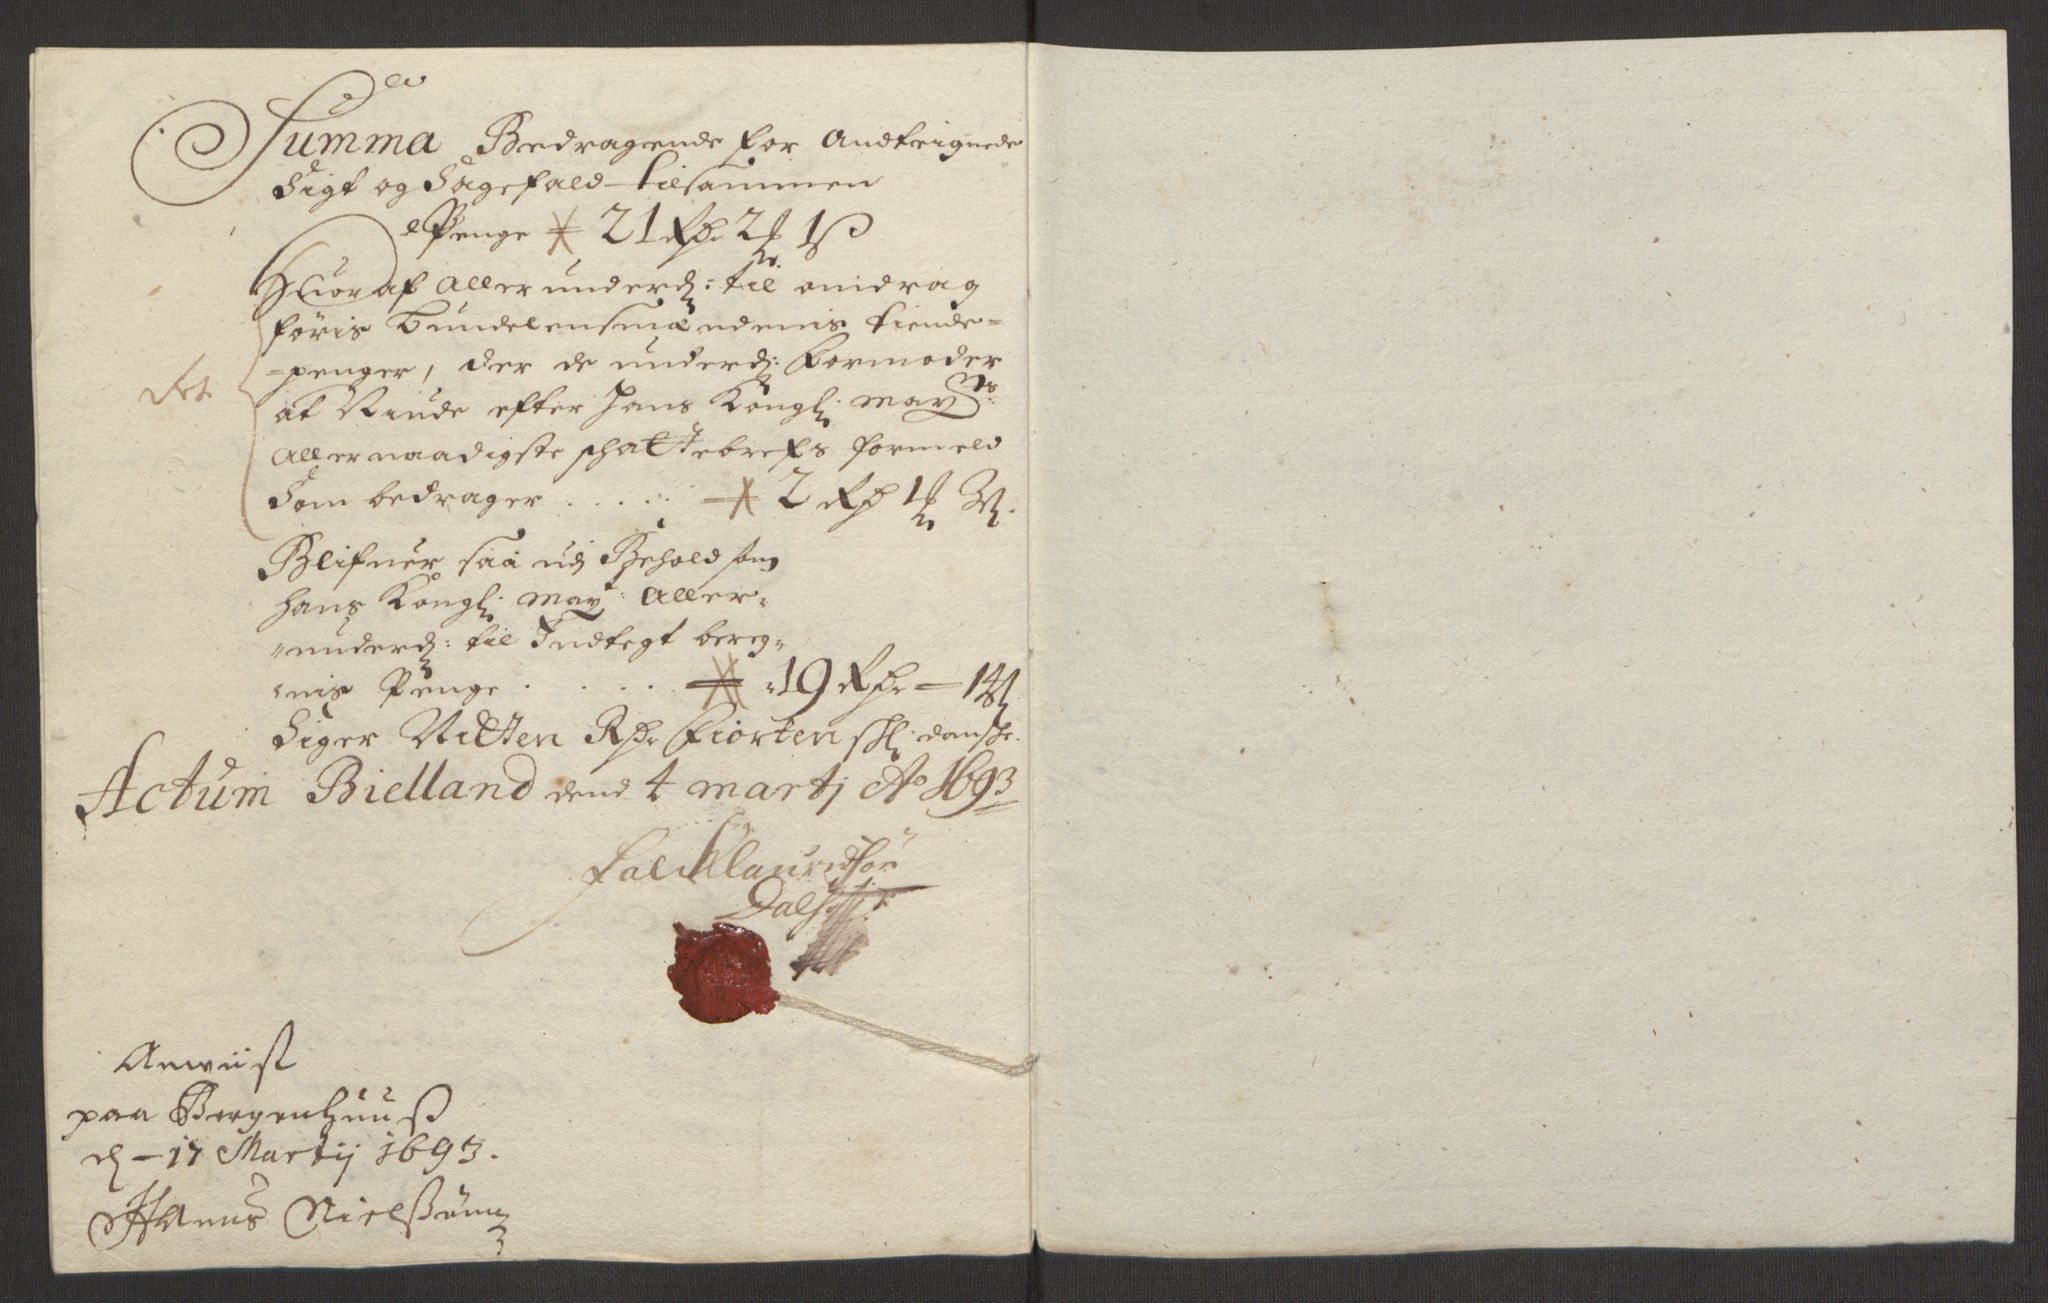 Summa Bedragende for Andteignede
Sigt og Sagefald tilsammen
Penge 21 Rdr 2 ort 1 ß
Huoraf Allerunderd: til omdrag
föris Bundelensmændenis tiende-
-penger, der de underd: Formoder
det
at Niude efter Hans Kongl: Mayts:
Allernaadigste schattebrefs formeld
Som bedrager . . . . . 2 Rdr 1 ort 3 ß.
Blifuer saa udj Behold som
hans Kongl: May: Aller-
-underd: til Indtegt bereg-
-nis Penge . . . . 19 Rdr — 14 ß
Siger Nitten Rdr Fiorten schl: danske.
Actum Bielland dend 4 martj Ao 1693
Falch Lauridsön
Anviist
paa Bergenhuuß
d — 17 Martij 1693.
Hanns Nielßönn